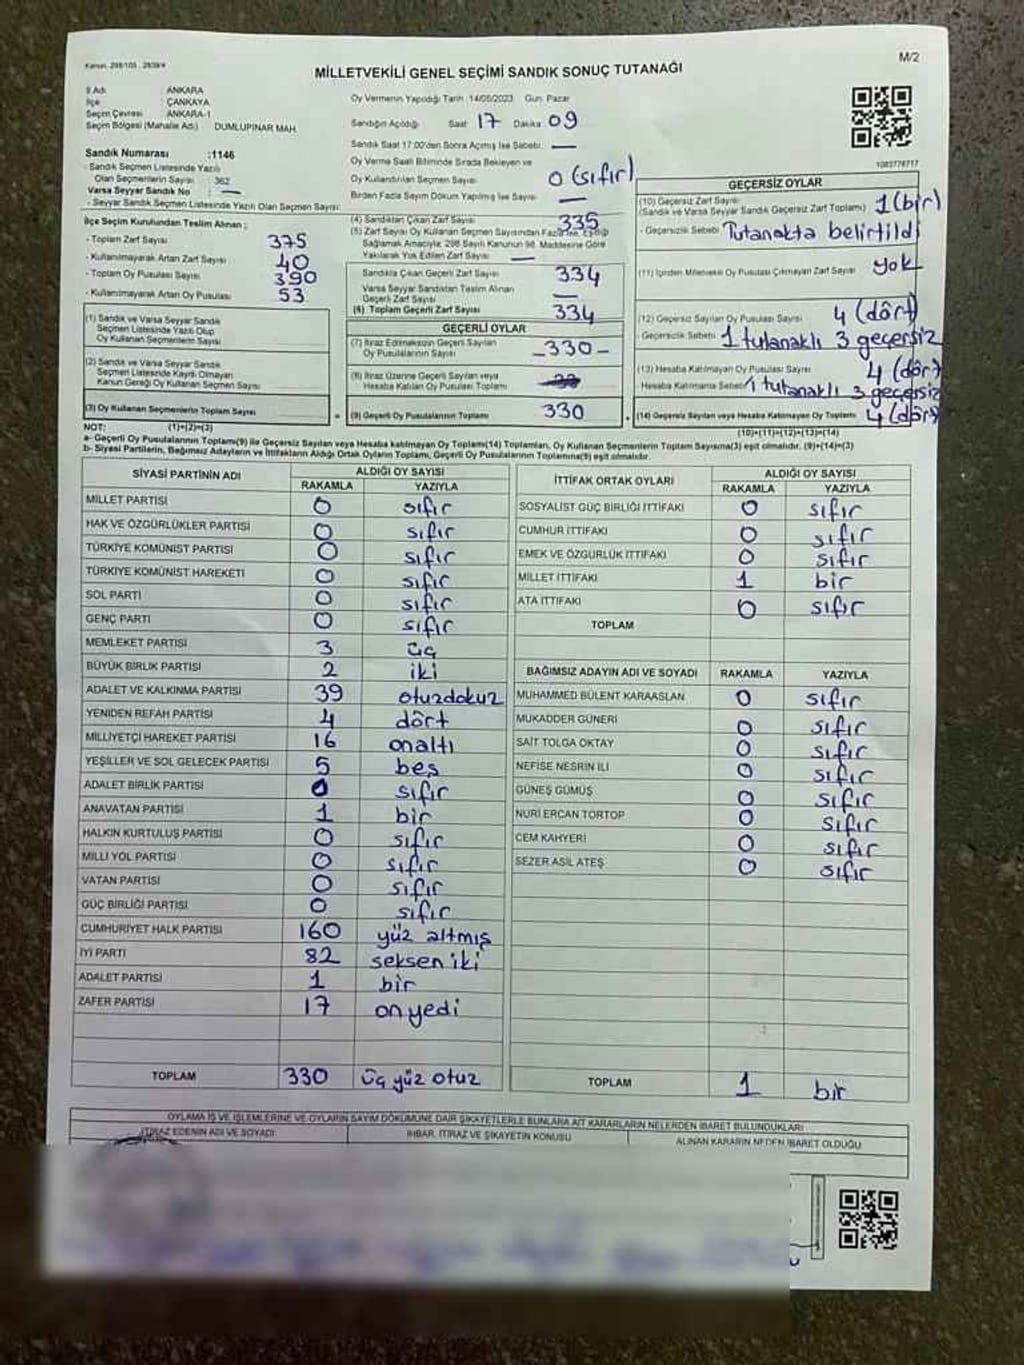 Kanun, 298/105 , 2839/4
M/2
MİLLETVEKİLİ GENEL SEÇİMİ SANDIK SONUÇ TUTANAĞI
İl Adı : ANKARA
İlçe : ÇANKAYA
Seçim Çevresi : ANKARA-1
Seçim Bölgesi (Mahalle Adı) : DUMLUPINAR MAH.
Sandık Numarası :1146
- Sandık Seçmen Listesinde Yazılı
Olan Seçmenlerin Sayısı : 362
Varsa Seyyar Sandık No : —
- Seyyar Sandık Seçmen Listesinde Yazılı Olan Seçmen Sayısı:
Oy Vermenin Yapıldığı Tarih :14/05/2023 Gün: Pazar
Sandığın Açıldığı Saat 17 Dakika 09
Sandık Saat 17:00'den Sonra Açılmış İse Sebebi: —
Oy Verme Saati Bitiminde Sırada Bekleyen ve
Oy Kullandırılan Seçmen Sayısı: 0 (sıfır)
Birden Fazla Sayım Döküm Yapılmış İse Sayısı: —
1083776717
İlçe Seçim Kurulundan Teslim Alınan ;
- Toplam Zarf Sayısı 375
- Kullanılmayarak Artan Zarf Sayısı 40
- Toplam Oy Pusulası Sayısı 390
- Kullanılmayarak Artan Oy Pusulası 53
(1) Sandık ve Varsa Seyyar Sandık
Seçmen Listesinde Yazılı Olup
Oy Kullanan Seçmenlerin Sayısı
(2) Sandık ve Varsa Seyyar Sandık
Seçmen Listesinde Kaydı Olmayan
Kanun Gereği Oy Kullanan Seçmen Sayısı
(3) Oy Kullanan Seçmenlerin Toplam Sayısı
(4) Sandıktan Çıkan Zarf Sayısı 335
(5) Zarf Sayısı Oy Kullanan Seçmen Sayısından Fazla İse, Eşitliği
Sağlamak Amacıyla; 298 Sayılı Kanunun 98. Maddesine Göre
Yakılarak Yok Edilen Zarf Sayısı —
Sandıkta Çıkan Geçerli Zarf Sayısı 334
Varsa Seyyar Sandıktan Teslim Alınan
Geçerli Zarf Sayısı —
(6) Toplam Geçerli Zarf Sayısı 334
GEÇERLİ OYLAR
(7) İtiraz Edilmeksizin Geçerli Sayılan
Oy Pusulalarının Sayısı -330-
(8) İtiraz Üzerine Geçerli Sayılan veya
Hesaba Katılan Oy Pusulası Toplamı
= (9) Geçerli Oy Pusulalarının Toplamı 330 +
GEÇERSİZ OYLAR
(10) Geçersiz Zarf Sayısı
(Sandık ve Varsa Seyyar Sandık Geçersiz Zarf Toplamı) 1 (bir)
- Geçersizlik Sebebi Tutanakta belirtildi
(11) İçinden Milletvekili Oy Pusulası Çıkmayan Zarf Sayısı yok
(12) Geçersiz Sayılan Oy Pusulası Sayısı 4 (dört)
- Geçersizlik Sebebi 1 tutanaklı 3 geçersiz
(13) Hesaba Katılmayan Oy Pusulası Sayısı 4 (dört)
- Hesaba Katılmama Sebebi 1 tutanaklı 3 geçersiz
(14) Geçersiz Sayılan veya Hesaba Katılmayan Oy Toplamı 4 (dört)
NOT: (1)+(2)=(3) (10)+(11)+(12)+(13)=(14)
a- Geçerli Oy Pusulalarının Toplamı(9) ile Geçersiz Sayılan veya Hesaba katılmayan Oy Toplamı(14) Toplamları, Oy Kullanan Seçmenlerin Toplam Sayısına(3) eşit olmalıdır. (9)+(14)=(3)
b- Siyasi Partilerin, Bağımsız Adayların ve İttifakların Aldığı Ortak Oyların Toplamı, Geçerli Oy Pusulalarının Toplamına(9) eşit olmalıdır.
SİYASİ PARTİNİN ADI ALDIĞI OY SAYISI
RAKAMLA YAZIYLA
MİLLET PARTİSİ 0 sıfır
HAK VE ÖZGÜRLÜKLER PARTİSİ 0 sıfır
TÜRKİYE KOMÜNİST PARTİSİ 0 sıfır
TÜRKİYE KOMÜNİST HAREKETİ 0 sıfır
SOL PARTİ 0 sıfır
GENÇ PARTİ 0 sıfır
MEMLEKET PARTİSİ 3 üç
BÜYÜK BİRLİK PARTİSİ 2 iki
ADALET VE KALKINMA PARTİSİ 39 otuzdokuz
YENİDEN REFAH PARTİSİ 4 dört
MİLLİYETÇİ HAREKET PARTİSİ 16 onaltı
YEŞİLLER VE SOL GELECEK PARTİSİ 5 beş
ADALET BİRLİK PARTİSİ 0 sıfır
ANAVATAN PARTİSİ 1 bir
HALKIN KURTULUŞ PARTİSİ 0 sıfır
MİLLİ YOL PARTİSİ 0 sıfır
VATAN PARTİSİ 0 sıfır
GÜÇ BİRLİĞİ PARTİSİ 0 sıfır
CUMHURİYET HALK PARTİSİ 160 yüz altmış
İYİ PARTİ 82 seksen iki
ADALET PARTİSİ 1 bir
ZAFER PARTİSİ 17 on yedi
TOPLAM 330 üç yüz otuz
İTTİFAK ORTAK OYLARI ALDIĞI OY SAYISI
RAKAMLA YAZIYLA
SOSYALİST GÜÇ BİRLİĞİ İTTİFAKI 0 sıfır
CUMHUR İTTİFAKI 0 sıfır
EMEK VE ÖZGÜRLÜK İTTİFAKI 0 sıfır
MİLLET İTTİFAKI 1 bir
ATA İTTİFAKI 0 sıfır
TOPLAM
BAĞIMSIZ ADAYIN ADI VE SOYADI RAKAMLA YAZIYLA
MUHAMMED BÜLENT KARAASLAN 0 sıfır
MUKADDER GÜNERİ 0 sıfır
SAİT TOLGA OKTAY 0 sıfır
NEFİSE NESRİN İLİ 0 sıfır
GÜNEŞ GÜMÜŞ 0 sıfır
NURİ ERCAN TORTOP 0 sıfır
CEM KAHYERİ 0 sıfır
SEZER ASİL ATEŞ 0 sıfır
TOPLAM 1 bir
OYLAMA İŞ VE İŞLEMLERİNE VE OYLARIN SAYIM DÖKÜMÜNE DAİR ŞİKAYETLERLE BUNLARA AİT KARARLARIN NELERDEN İBARET BULUNDUKLARI
İTİRAZ EDENİN ADI VE SOYADI İHBAR, İTİRAZ VE ŞİKAYETİN KONUSU ALINAN KARARIN NEDEN İBARET OLDUĞU